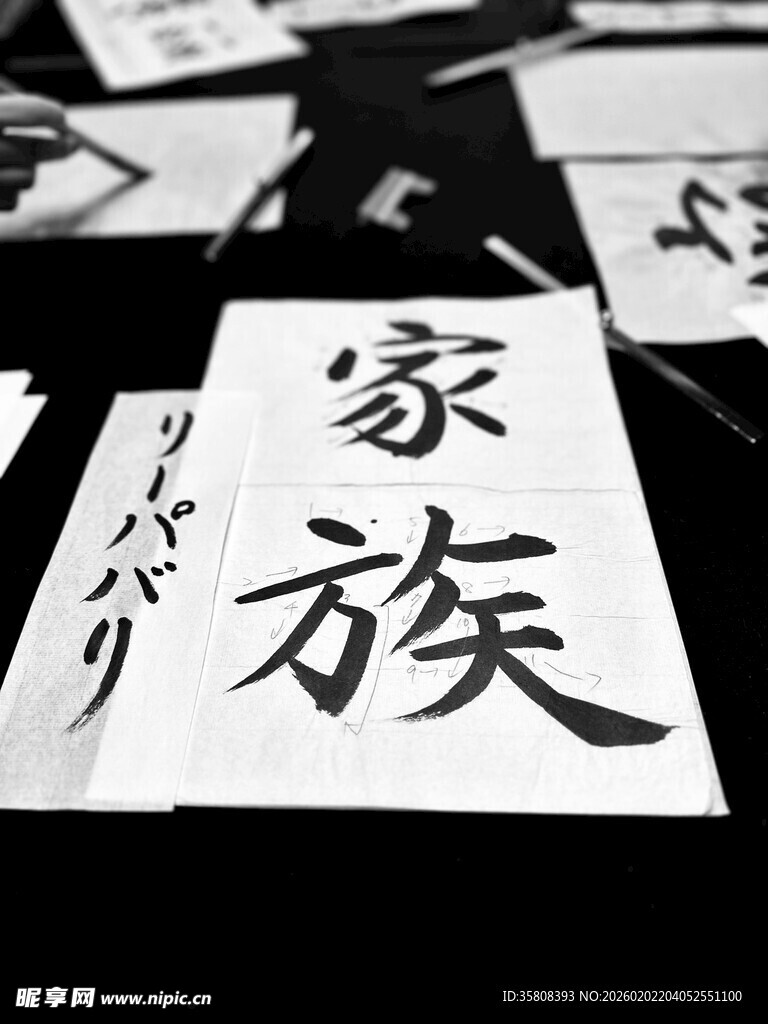 家
族
リーパバリ
1 5 6
2 3 7 8
4 10
9 11
昵享网 www.nipic.cn
ID:35808393 NO:20260202204052551100